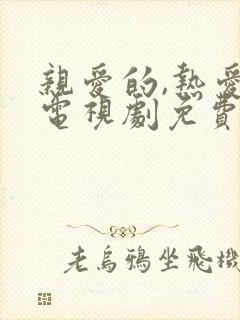 親愛的,熱愛
電視劇免費
老烏鴉坐飛機